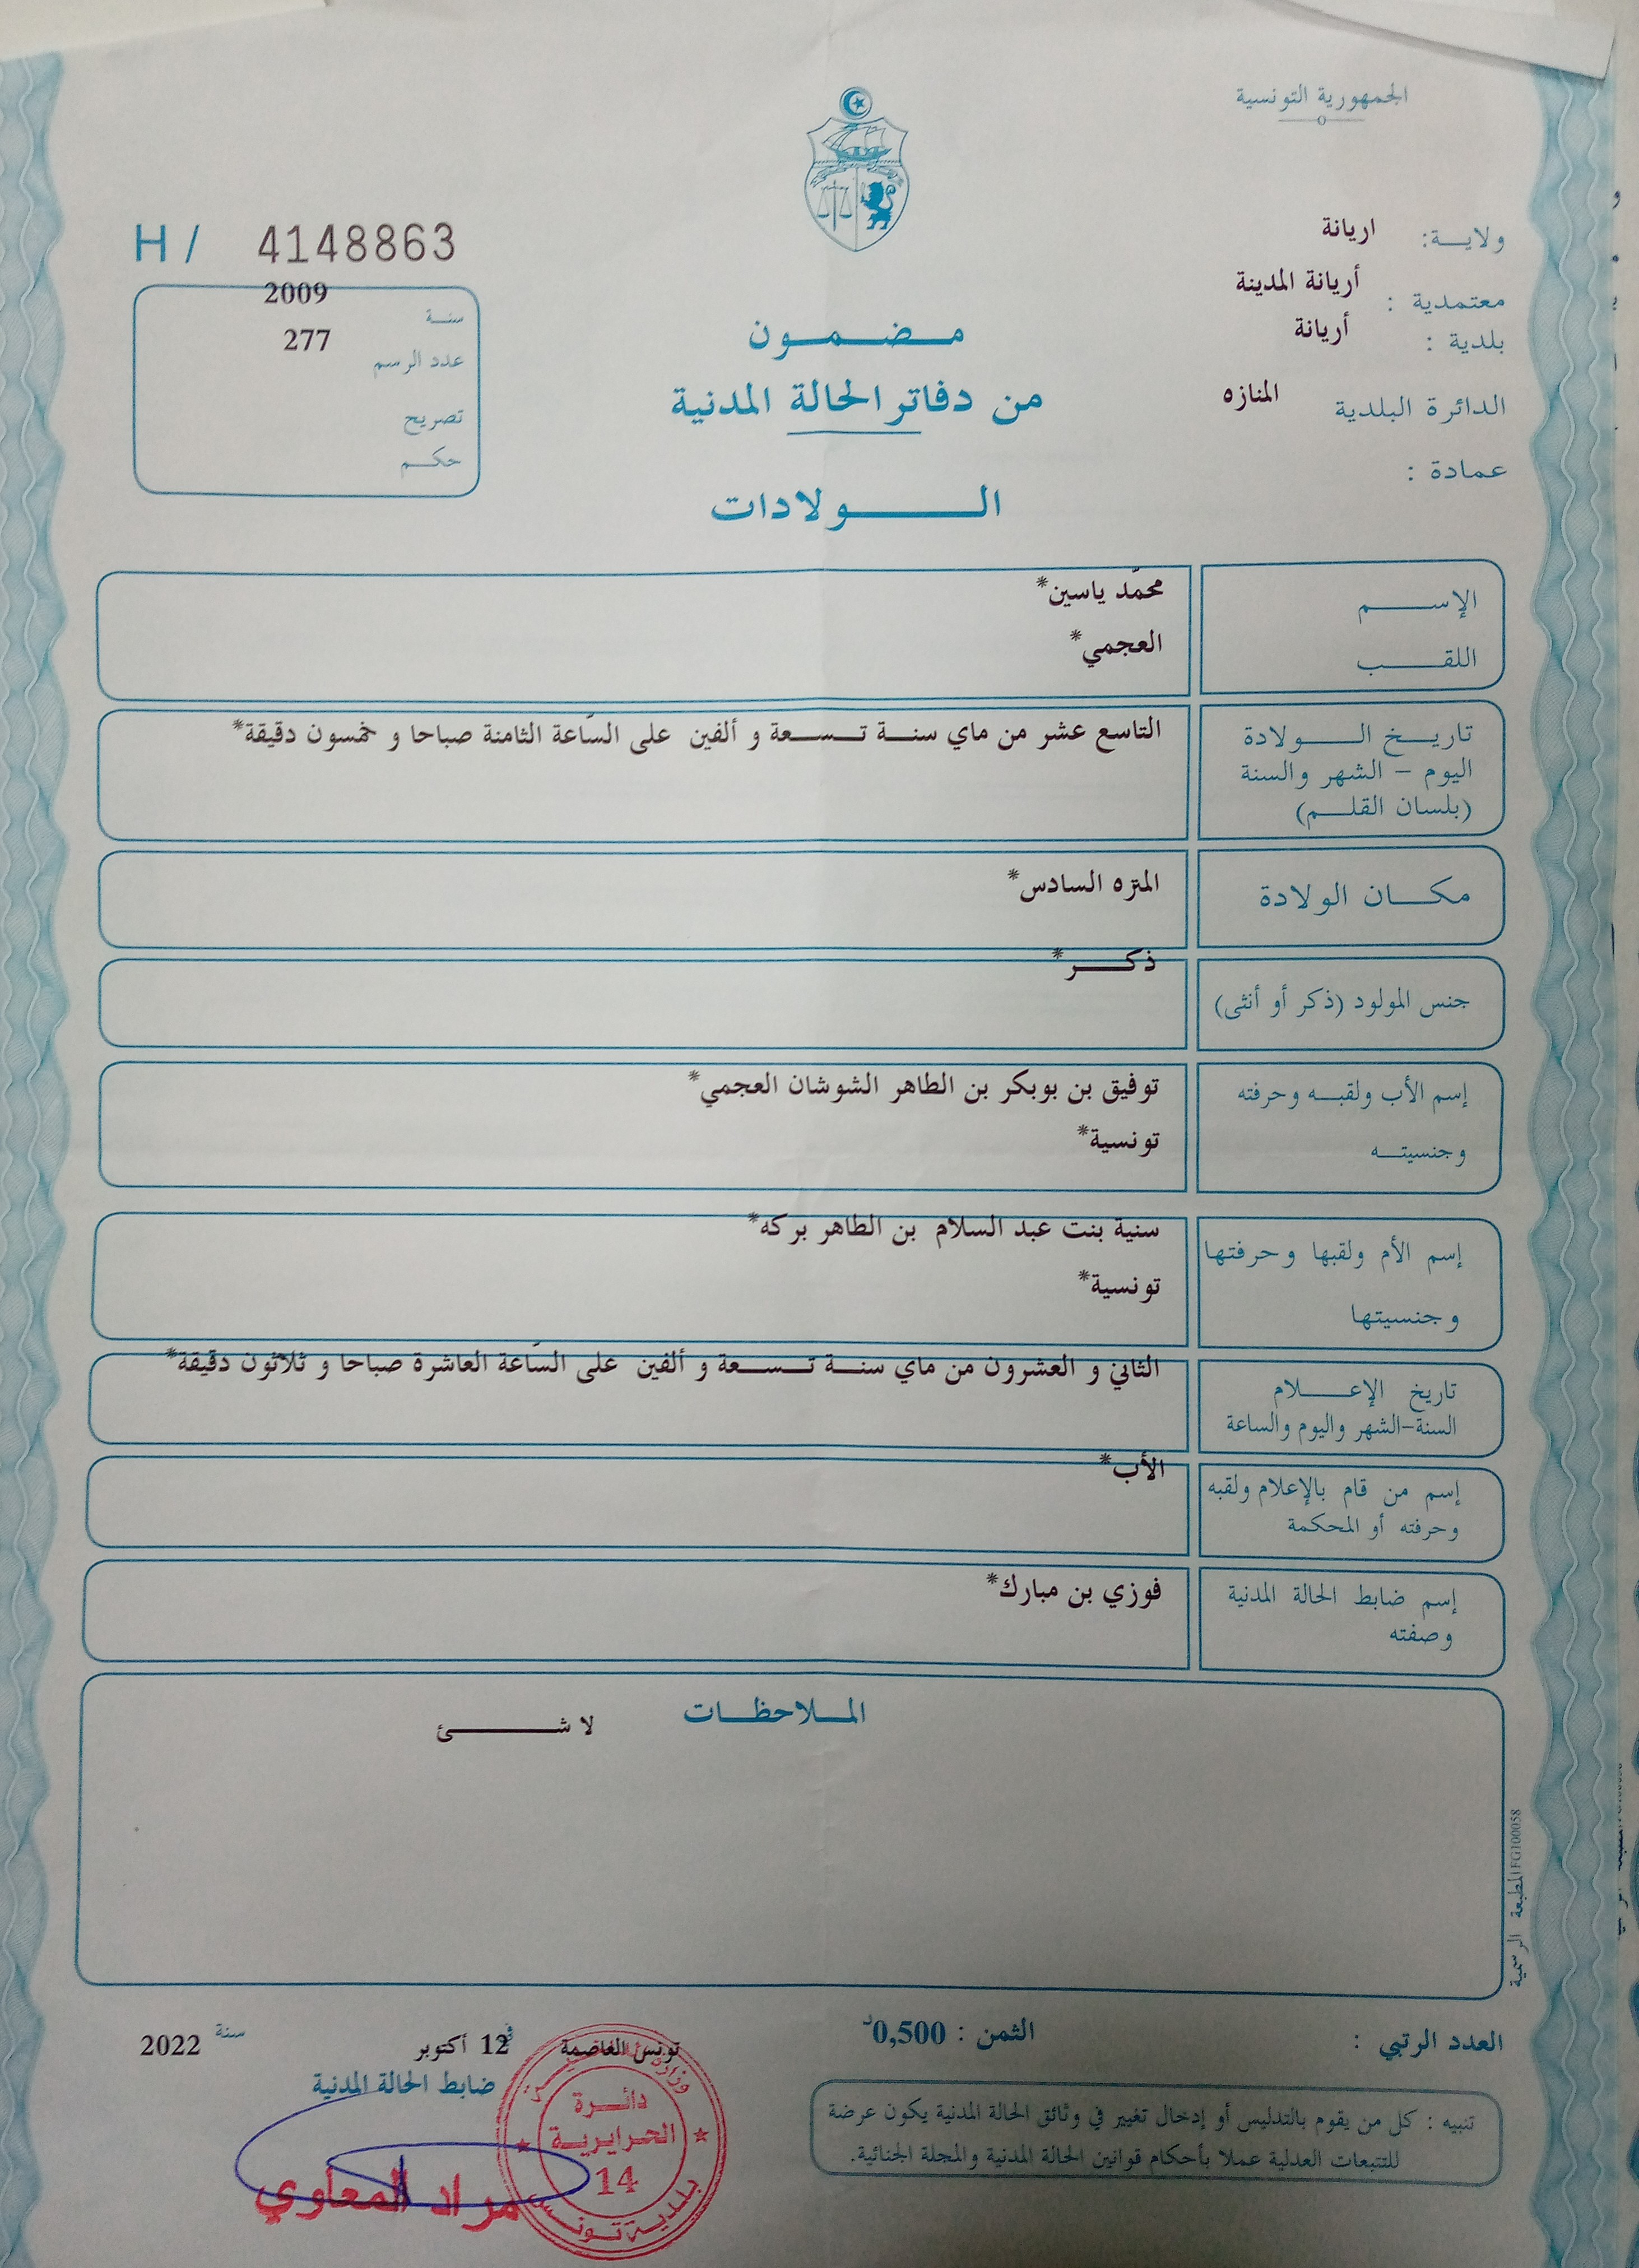 الجمهورية التونسية
ولايـــة: اريانة
معتمدية : أريانة المدينة
بلدية : أريانة
الدائرة البلدية المنازه
عمادة :
H / 4148863
سنـــة 2009
عدد الرسم 277
تصريح
حكـــم
مـــضـــمـــون
من دفاتر الحالة المدنية
الـــــولادات
الإســـــم محمّد ياسين*
اللقـــــب العجمي*
تاريـــخ الـــــولادة التاسع عشر من ماي سنـــة تـــســـعة و ألفين على السّاعة الثامنة صباحا و خمسون دقيقة*
اليوم – الشهر والسنة
(بلسان القلـــم)
مكـــان الولادة المتره السادس*
جنس المولود (ذكر أو أنثى) ذكـــر*
إسم الأب ولقبـــه وحرفته توفيق بن بوبكر بن الطاهر الشوشان العجمي*
وجنسيتـــه تونسية*
إسم الأم ولقبها وحرفتها سنية بنت عبد السلام بن الطاهر بركه*
وجنسيتها تونسية*
تاريخ الإعـــــلام الثاني و العشرون من ماي سنـــة تـــســـعة و ألفين على السّاعة العاشرة صباحا و ثلاثون دقيقة*
السنة-الشهر واليوم والساعة
إسم من قام بالإعلام ولقبه الأب*
وحرفته أو المحكمة
إسم ضابط الحالة المدنية فوزي بن مبارك*
وصفته
المـــلاحظـــات
لا شـــــئ
المطبعة الرسمية FG100058
العدد الرتبي :
الثمن : 0,500د
تونس العاصمة في 12 أكتوبر سنة 2022
ضابط الحالة المدنية
تنبيه : كل من يقوم بالتدليس أو إدخال تغيير في وثائق الحالة المدنية يكون عرضة
للتتبعات العدلية عملا بأحكام قوانين الحالة المدنية والمجلة الجنائية.
دائـــرة
الحرايرية
14
بلدية تونس
مراد المعاوي